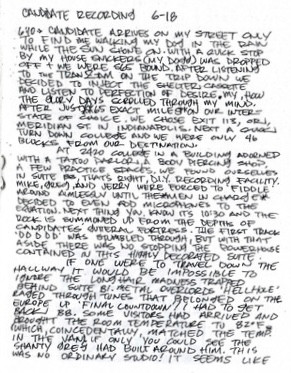 CANDIATE RECORDING 6-18
6900 CANDIATE ARRIVES ON MY STREET ONLY
TO FIND ME WALKING MY DOG IN THE RAIN
WHILE THE SUN SHONE ON. WITH A QUICK STOP
BY MY HOUSE SNICKERS (MY DOG) WAS DROPPED
OFF & WE WERE SGS BOUND. AFTER LISTENING
TO THE ON THE TRIP DOWN WE
DECIDED TO INJECT THE SHELTER CASSETTE
AND LISTEN TO PERFECTION & DESIRE. MY, HOW
THE GLORY DAYS SCROLLED THROUGH MY MIND.
AFTER JUST EXACT MILES ON OUR INTER
STATE OF CHOICE, WE CHOSE EXIT 113, OR,
MERIDIAN ST IN INDIANAPOLIS. NEXT A QUICK
TURN DOWN COLLEGE AND WE WERE ONLY 46
BLOCKS FROM OUR DESTINATION.
AT 2420 COLLEGE IN A BUILDING ADORNED
WITH A TATOO PARLOR, A BODY PIERCING SHOP,
& FEW PRACTICE SPACES, WE FOUND OURSELVES
IN SUITE B8. THAT'S RIGHT, D.I.Y. RECORDING FACILITY.
MIKE, GREG, AND JERRY WERE FORCED TO FIDDLE
AROUND AIMLESSLY UNTIL THE MEN IN CHARGE
DECIDED TO EVEN ADD MICROPHONES TO THE
EQUATION. NEXT THING YOU KNOW ITS 10:30 AND THE
ROCK IS SUMMONED UP FROM THE DEPTHS OF
CANDIATES FUNERAL FORTRESS. THE FIRST TRACK
WAS STUMBLED THROUGH, BUT WITH THAT
ASIDE THERE WAS NO STOPPING THE POWERHOUSE
CONTAINED IN THIS HIGHLY DECORATED SUITE.
IF ONE WERE TO TRAVEL DOWN THE
HALLWAY IT WOULD BE IMPOSSIBLE TO
IGNORE THE LONG HAIR MADNESS TRAPPED
BEHIND SUITE B1. METAL OVERLORDS "HELLHOLE"
RAGED THROUGH TUNES THAT BELONGED ON THE
EUROPE LP "FINAL COUNTDOWN". I HAD TO GET
BACK TO B8. SOME VISITORS HAD ARRIVED AND
BROUGHT THE ROOM TEMPERATURE TO 82°F
(WHICH, COINCEDENTALY, MATCHED THE TEMP
IN THE VAN. IF ONLY YOU COULD SEE THE
SHANTY GREG HAD BUILT AROUND HIM. THIS
WAS NO ORDINARY STUDIO! IT SEEMS LIKE